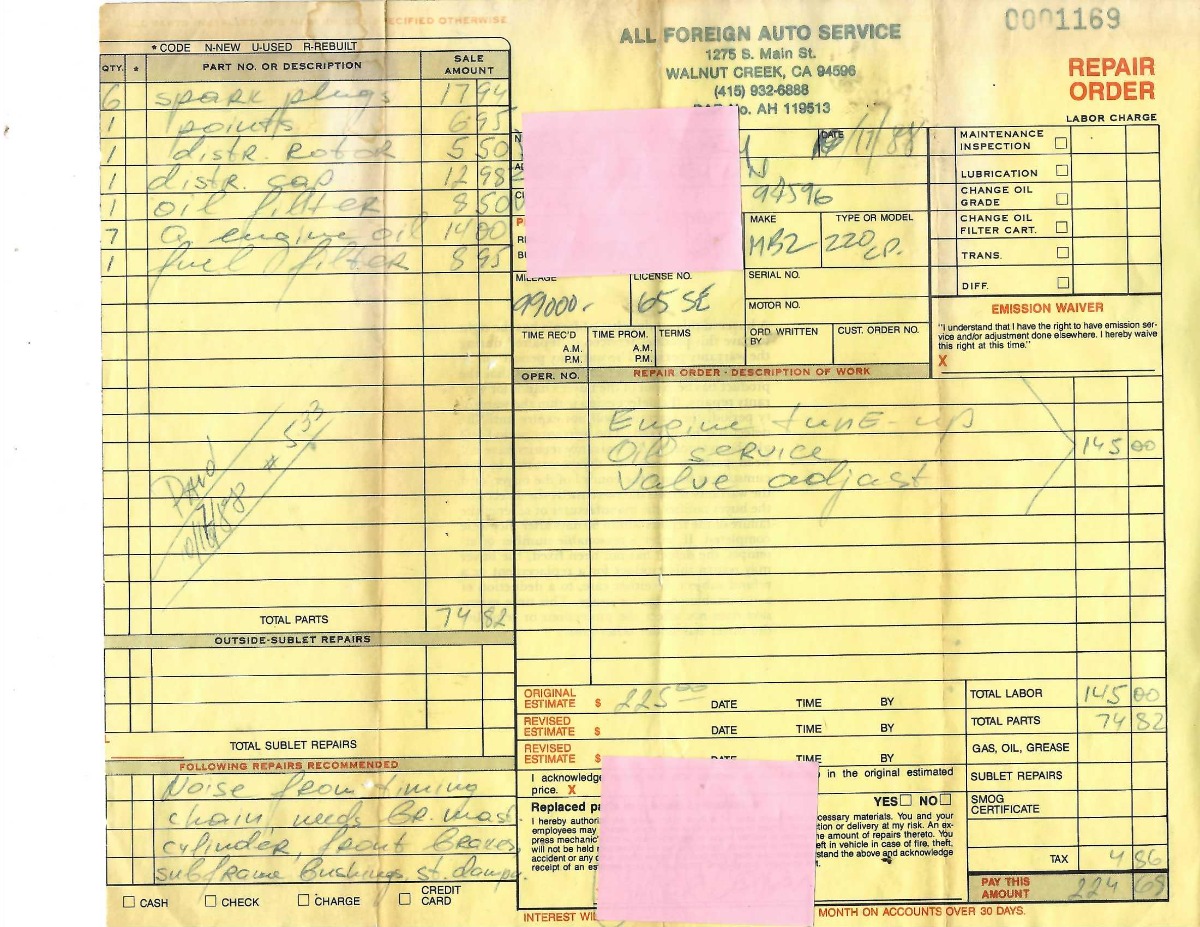 CIFIED OTHERWISE
* CODE N-NEW U-USED R-REBUILT
QTY. * PART NO. OR DESCRIPTION SALE AMOUNT
6 spark plugs 17 94
1 points 6 95
1 distr. rotor 5 50
1 distr. cap 12 98
1 oil filter 8 50
7 Q engine oil 14 00
1 fuel filter 8 95
PAID # 533
TOTAL PARTS 74 82
OUTSIDE-SUBLET REPAIRS
TOTAL SUBLET REPAIRS
FOLLOWING REPAIRS RECOMMENDED
Noise from timing
chain, needs Br. mast.
cylinder, front Brakes,
subframe Bushings, st. damp.
CASH CHECK CHARGE CREDIT CARD
ALL FOREIGN AUTO SERVICE
1275 S. Main St.
WALNUT CREEK, CA 94596
(415) 932-6888
No. AH 119513
0001169
REPAIR
ORDER
LABOR CHARGE
DATE /17/88
94596
MAKE MBZ
TYPE OR MODEL 220 cp.
MILEAGE 99000.-
LICENSE NO. 65 SE
SERIAL NO.
MOTOR NO.
TIME REC'D A.M. P.M.
TIME PROM. A.M. P.M.
TERMS
ORD. WRITTEN BY
CUST. ORDER NO.
MAINTENANCE INSPECTION
LUBRICATION
CHANGE OIL GRADE
CHANGE OIL FILTER CART.
TRANS.
DIFF.
EMISSION WAIVER
"I understand that I have the right to have emission ser-
vice and/or adjustment done elsewhere. I hereby waive
this right at this time."
X
OPER. NO. REPAIR ORDER - DESCRIPTION OF WORK
Engine tune-up
Oil service 145 00
Valve adjast
ORIGINAL ESTIMATE $ 225 00 DATE TIME BY
REVISED ESTIMATE $ DATE TIME BY
REVISED ESTIMATE $ DATE TIME BY
I acknowledge in the original estimated
price. X
YES NO
Replaced pa
I hereby authori cessary materials. You and your
employees may tion or delivery at my risk. An ex-
press mechanic' he amount of repairs thereto. You
will not be held eft in vehicle in case of fire, theft,
accident or any stand the above and acknowledge
receipt of an es
TOTAL LABOR 145 00
TOTAL PARTS 74 82
GAS, OIL, GREASE
SUBLET REPAIRS
SMOG CERTIFICATE
TAX 4 86
PAY THIS AMOUNT 224 68
INTEREST WIL MONTH ON ACCOUNTS OVER 30 DAYS.